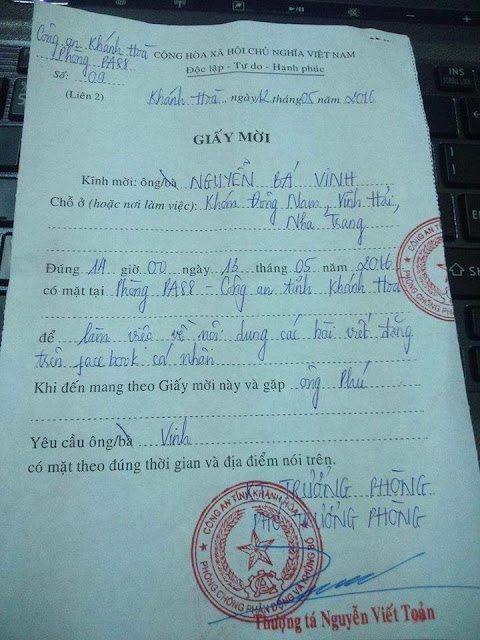 Công an Khánh Hoà
Phòng PA88
Số: 09
(Liên 2)
CỘNG HÒA XÃ HỘI CHỦ NGHĨA VIỆT NAM
Độc lập - Tự do - Hạnh phúc
Khánh Hoà, ngày 12 tháng 05 năm 2016
GIẤY MỜI
Kính mời: ông/bà NGUYỄN BÁ VINH
Chỗ ở (hoặc nơi làm việc): Khóm Đông Nam, Vĩnh Hải,
Nha Trang
Đúng 14 giờ 00 ngày 16 tháng 05 năm 2016
có mặt tại Phòng PA88 - Công an tỉnh Khánh Hoà
để làm việc về nội dung các bài viết đăng
trên facebook cá nhân
Khi đến mang theo Giấy mời này và gặp ông Phú
Yêu cầu ông/bà Vinh
có mặt theo đúng thời gian và địa điểm nói trên.
TRƯỞNG PHÒNG
PHÓ TRƯỞNG PHÒNG
CÔNG AN TỈNH KHÁNH HÒA
PHÒNG CHỐNG PHẢN ĐỘNG VÀ KHỦNG BỐ
Thượng tá Nguyễn Viết Toản
CÔNG AN TỈNH
PHÒNG CHỐNG PHẢN
INS
SHIFT